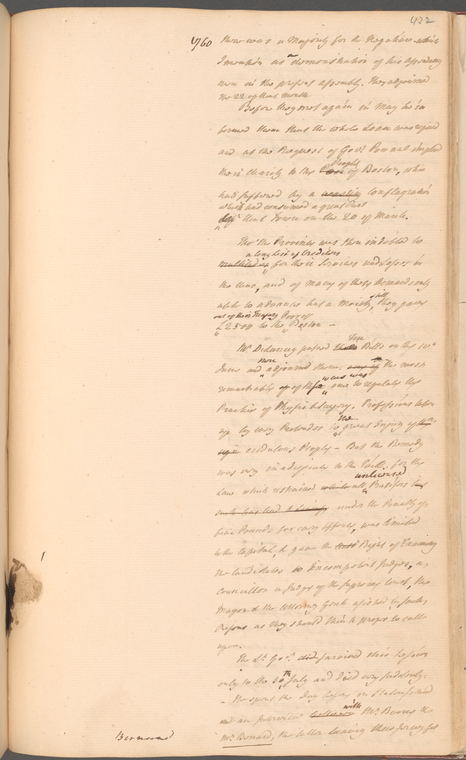 422
1760 There was a Majority for the Negative which
demonstration of his
in the present Assembly. They adjourned
the 22 of that month.
Before they met again in May he in
formed them that the whole Loan was repaid
and at the Request of Govr Pownal
their Charity to the People of Boston, who
had suffered by a conflagration
which had consumed a great Part
of that Town on the 20 of March.
Tho' the Province was then indebted to
a long list of Creditors
for their Services and Losses in
the War, and of many of these Demands
able to advance but a Moiety, they gave
out of their Treasury
£2500 to the Boston —
Mr Delancey passed Ten Bills on the 10th
June and adjourned them. The most
remarkable of these was one to regulate the
Practice of Physic & Surgery. Professions taken
up by many Pretenders to the great Injury of
credulous People — But the Remedy
was very inadequate to the Evil, for the
Law which restrained all unlicensed Practisers
under the Penalty of
five Pounds for every offence, was limited
to the Capital, & gave the Right of Examining
the Candidates to incompetent Judges, a
Councillor a Judge of the Supreme Court, the
Mayor & the Attorny Genl assisted by such
Persons as they should think proper to call
upon.
The Lt Govr survived this Session
only to the 30th July and died very suddenly.
— He spent the Day before on Staten Island
and an interview with Mr Barnes the
Mr Bernard, the latter leaving the
Bernard